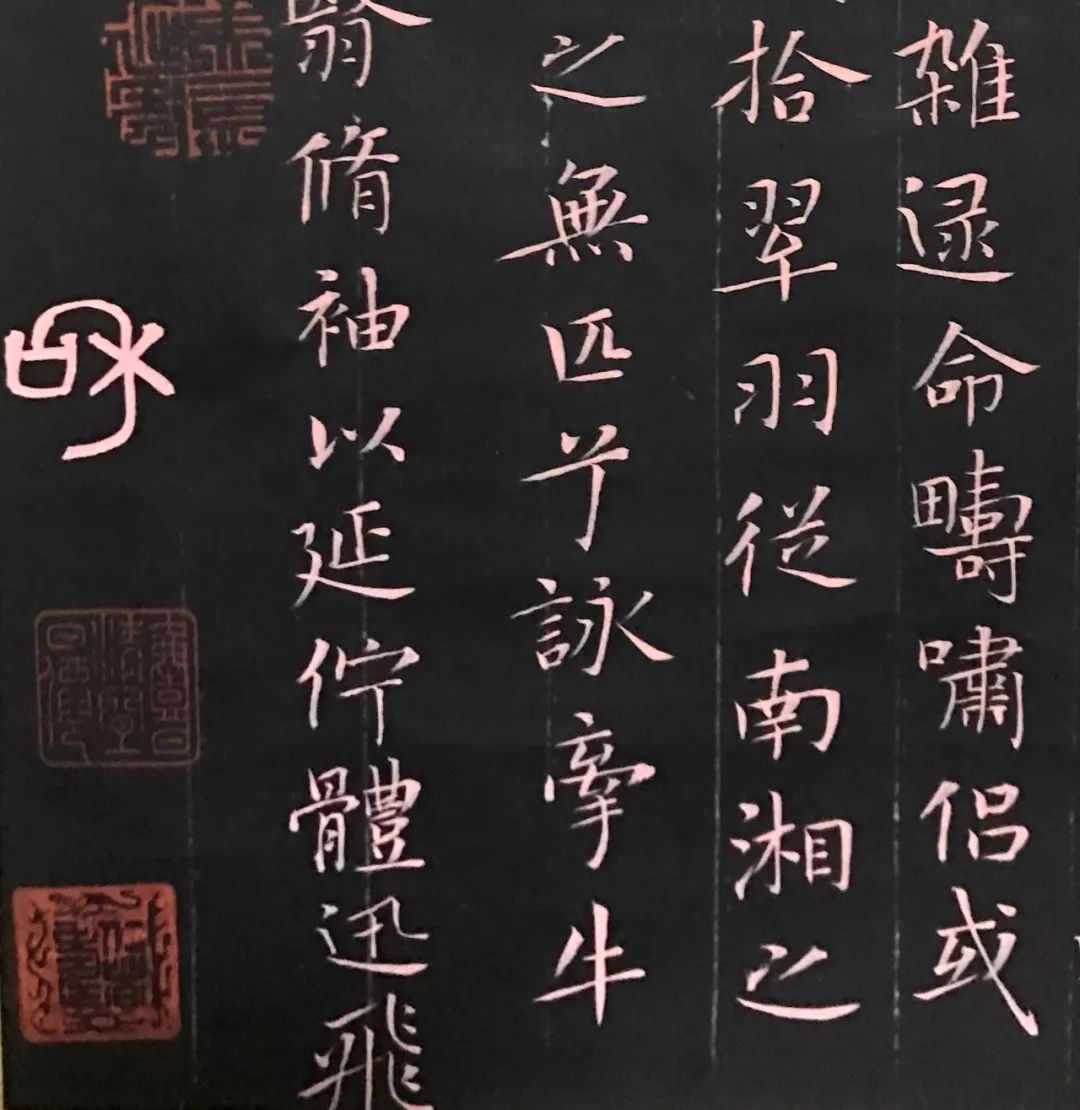 雜遝命疇嘯侶或
拾翠羽從南湘之
之無匹兮詠牽牛
翳脩袖以延佇體迅飛